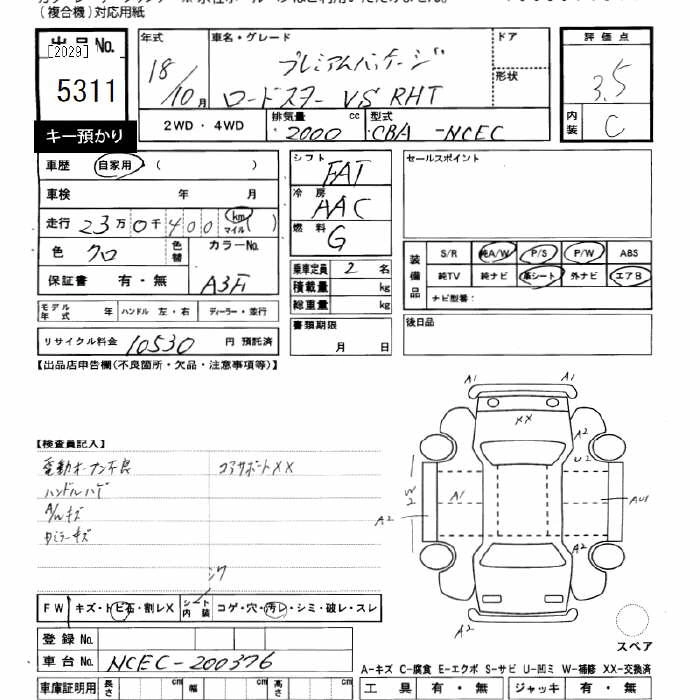 (複合機)対応用紙
出品No. [2029] 5311
キー預かり
年式 18/10月
車名・グレード プレミアムパッケージ
ロードスター VS RHT
ドア
形状
評価点 3.5
内装 C
2WD・4WD
排気量 2000 cc
型式 CBA -NCEC
車歴 自家用 ( )
車検 年 月
走行 23万0千400 km マイル ( )
色 クロ 色替 カラーNo.
保証書 有・無 A3F
モデル年式 年 ハンドル 左・右 ディーラー・並行
リサイクル料金 10530 円 預託済
シフト FAT
冷房 AAC
燃料 G
乗車定員 2 名
積載量 kg
総重量 kg
書類期限
月 日
セールスポイント
装備品
S/R 純A/W P/S P/W ABS
純TV 純ナビ 革シート 外ナビ エアB
ナビ型番:
後日品
【出品店申告欄(不良箇所・欠品・注意事項等)】
【検査員記入】
電動オープン不良 コアサポートXX
ハンドルハゲ
A/Wキズ
カミラーキズ
シワ
A1 A1
XX
A2
U2
W2
A1
A2
AU1
A2
A2
スペア
FW キズ・トビ石・割レX シート内装 コゲ・穴・汚レ・シミ・破レ・スレ
登録No.
車台No. NCEC-200376
A-キズ C-腐食 E-エクボ S-サビ U-凹ミ W-補修 XX-交換済
車庫証明用 長さ cm 幅 cm 高さ cm
工具 有・無 ジャッキ 有・無